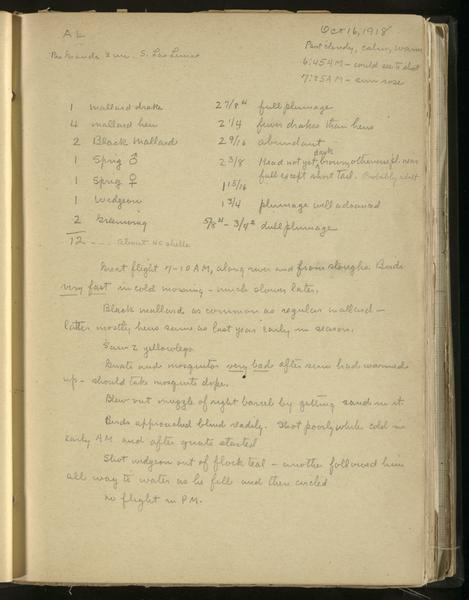 AL
Oct 16, 1918
Rio Grande 2 mi. S. Las Lunas
Part cloudy, calm, warm
6:45 AM – could see to shoot
7:25 AM – sun rose
1 mallard drake 2 7/8" full plumage
4 mallard hen 2 1/4 fewer drakes than hens
2 Black Mallard 2 9/16 abundant
1 Sprig ♂ 2 3/8 Head not yet dark brown, otherwise pl. near
full except short tail. Probably adult
1 Sprig ♀ 1 15/16
1 Widgeon 1 3/4 plumage well advanced
2 Greenwing 5/8" – 3/4" dull plumage
12 --- About 40 shells
Great flight 7–10 AM, along river and from sloughs. Birds
very fast in cold morning – much slower later.
Black mallards as common as regular mallard –
latter mostly hens same as last year early in season.
Saw 2 yellowlegs
Gnats and mosquitos very bad after sun had warmed
up – should take mosquito dope.
Blew out muzzle of right barrel by getting sand in it
Birds approached blind readily. Shot poorly while cold in
early AM and after gnats started
Shot widgeon out of flock teal – another followed him
all way to water as he fell and then circled
no flight in P.M.